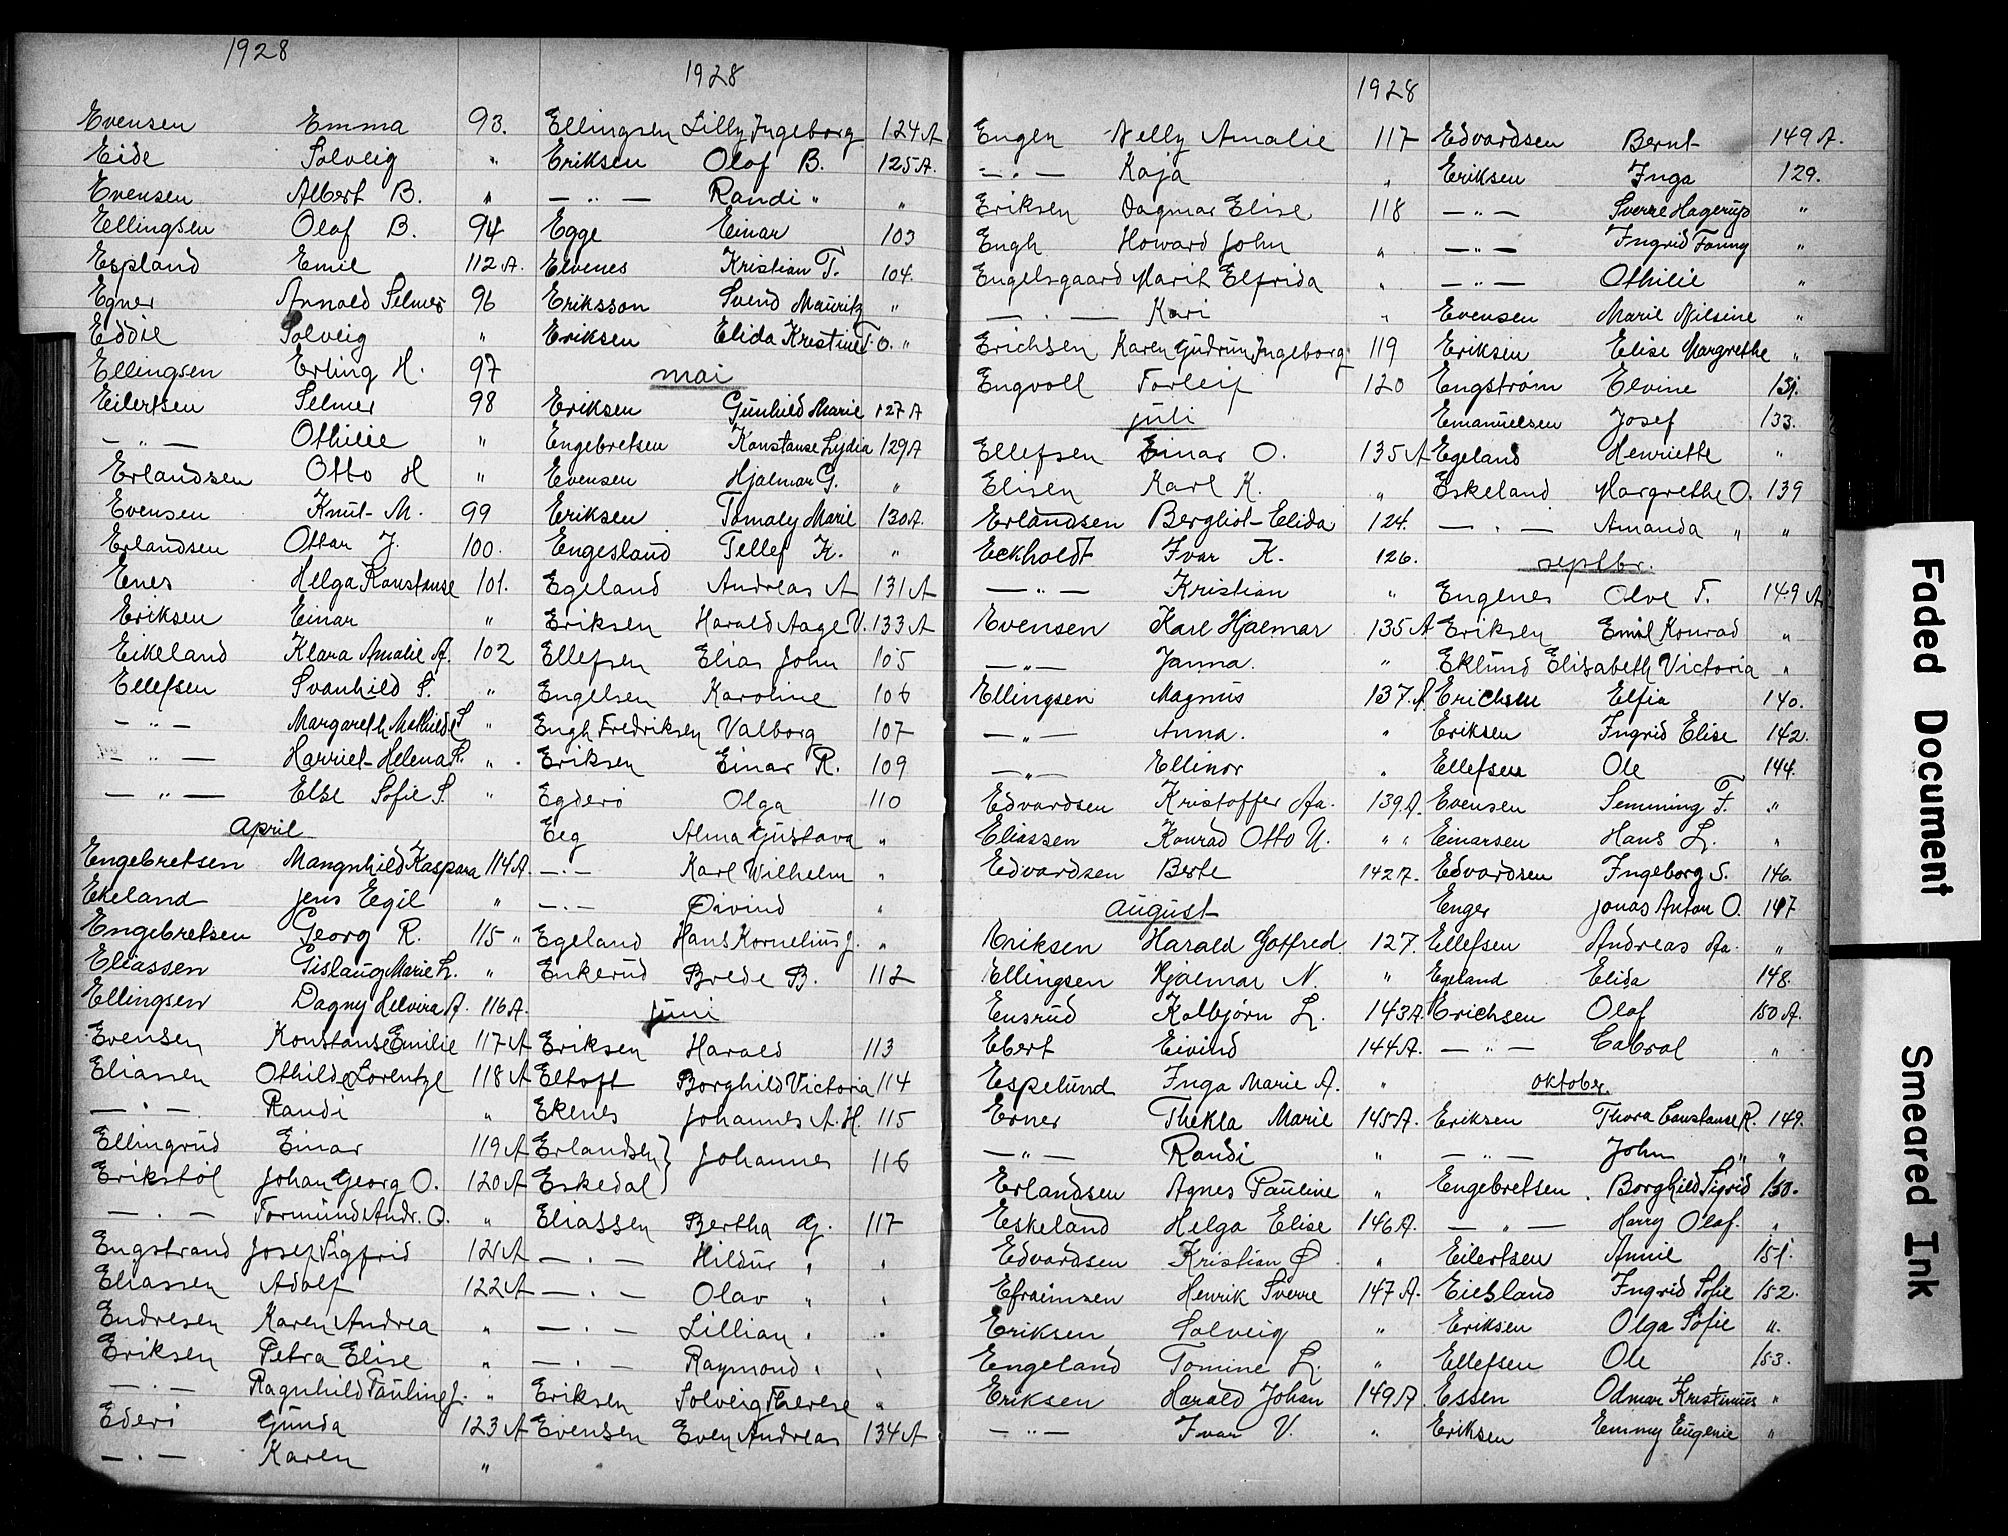 1928
Evensen Emma 93.
Eide Solveig "
Evensen Albert B. "
Ellingsen Olaf B. 94
Espland Emil 112 A.
Egner Arnold Selmer 96
Eddie Solveig "
Ellingsen Erling H. 97
Eilertsen Selmer 98
— " — Othilie "
Erlandsen Otto H "
Evensen Knut M. 99
Erlandsen Ottar J. 100.
Enes Helga Konstanse 101.
Eriksen Einar "
Eikeland Klara Amalie A. 102
Ellefsen Svanhild S. "
— " — Margareth Mathilde S "
— " — Harriet Helena S. "
— " — Else Sofie S. "
April
Engebretsen Mangnhild Kaspara 114 A.
Ekeland Jens Egil "
Engebretsen Georg R. 115 "
Eliassen Gislaug Marie L. "
Ellingsen Dagny Helvira A. 116 A.
Evensen Konstanse Emilie 117 A
Eliassen Othilde Lorentze 118 A
— " — Randi "
Ellingrud Einar 119 A
Erikstøl Johan Georg O. 120 A
— " — Tormund Andr. O. "
Engstrand Josef Sigfrid 121 A
Eliassen Adolf 122 A
Endresen Karen Andrea "
Eriksen Petra Elise "
— " — Ragnhild Pauline J. "
Ederø Gunda 123 A
— " — Karen "
1928
Ellingsen Lilly Ingeborg 124 A
Eriksen Olaf B. 125 A.
— " — Randi " "
Egge Einar 103
Elvenes Kristian T. 104.
Eriksson Svend Mauritz "
Eriksen Elida Kristine T. O. "
mai
Eriksen Gunhild Marie 127 A
Engebretsen Konstanse Lydia 129 A
Evensen Hjalmar G. "
Eriksen Tomaly Marie 130 A.
Engesland Tellef K. "
Egeland Andreas A 131 A
Eriksen Harald Aage V. 133 A
Ellefsen Elias John 105
Engelsen Karoline 106
Engh Fredriksen Valborg 107
Eriksen Einar R. 109
Egderø Olga 110
Eeg Alma Gustava "
— " — Karl Wilhelm "
— " — Øivind "
Egeland Hans Kornelius J. "
Enkerud Brede B. 112
juni
Eriksen Harald 113
Eltoft Borghild Victoria 114
Ekenes Johannes A. H. 115
Erlandsen } Johannes 116
Eskedal }
Eliassen Bertha G. 117
— " — Hildur " "
— " — Olav " "
— " — Lillian " "
— " — Raymond " "
Eriksen Solveig Therese "
Evensen Even Andreas 134 A
1928
Engen Nelly Amalie 117
— " — Kaja "
Eriksen Dagmar Elise 118
Engh Howard John "
Engelsgaard Marit Elfrida "
— " — Kari "
Erichsen Karen Gudrun Ingeborg 119
Engvoll Torleif 120
juli
Ellefsen Einar O. 135 A
Elisen Karl K. "
Erlandsen Bergliot Elida 124.
Eckholdt Ivar K. 126.
— " — Kristian "
Evensen Karl Hjalmar 135 A
— " — Janna. "
Ellingsen Magnus 137. A
— " — Anna. "
— " — Ellinor "
Edvardsen Kristoffer Aa. 139. A.
Eliassen Konrad Otto U. " "
Edvardsen Berte 142 A.
August
Eriksen Harald Gotfred. 127.
Ellingsen Hjalmar N. "
Ensrud Kolbjørn L. 143 A.
Ebert Eivind 144 A.
Espelund Inga Marie A. "
Erner Thekla Marie 145 A.
— " — Randi "
Erlandsen Agnes Pauline "
Eskeland Helga Elise 146 A.
Edvardsen Kristian Ø. "
Efraimsen Henrik Sverre 147 A.
Eriksen Solveig "
Engeland Tomine L. "
Eriksen Harald Johan 149 A.
— " — Ivar V. "
Edvardsen Bernt 149 A.
Eriksen Inga 129.
— " — Sverre Hagerup "
— " — Ingrid Fanny "
— " — Othilie "
Evensen Marie Nilsine "
Eriksen Elise Margrethe "
Engstrøm Elvine 131.
Emanuelsen Josef 133.
Egeland Henriette "
Eskeland Margrethe O. 139
— " — Amanda " "
septbr.
Engenes Olve T. 149 A
Eriksen Emil Konrad "
Eklund Elisabeth Victoria "
Erichsen Elfia 140.
Eriksen Ingrid Elise 142.
Ellefsen Ole 144.
Evensen Semming F. "
Einarsen Hans L. "
Edvardsen Ingeborg S. 146.
Enger Jonas Anton O. 147
Ellefsen Andreas Aa. "
Egeland Elida 148.
Erichsen Olaf 150 A.
— " — Cabral "
oktober.
Eriksen Thora Constanse R. 149.
— " — John " "
Engebretsen Borghild Sigrid 150.
— " — Harry Olaf. "
Eilertsen Annie 151.
Eiesland Ingrid Sofie 152.
Eriksen Olga Sofie ".
Ellefsen Ole 153.
Essen Odmar Kristinius "
Eriksen Emmy Eugenie "
Faded Document
Smeared Ink